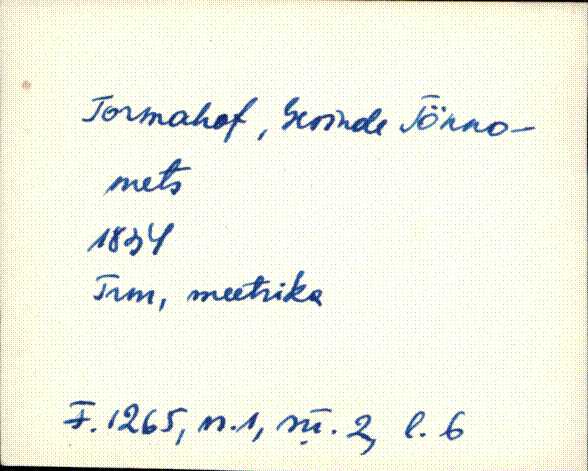 Tormahof, Gesinde Tönno-
mets
1834
Trm, meetrika
F. 1265, n. 1, sü. 2, l. 6